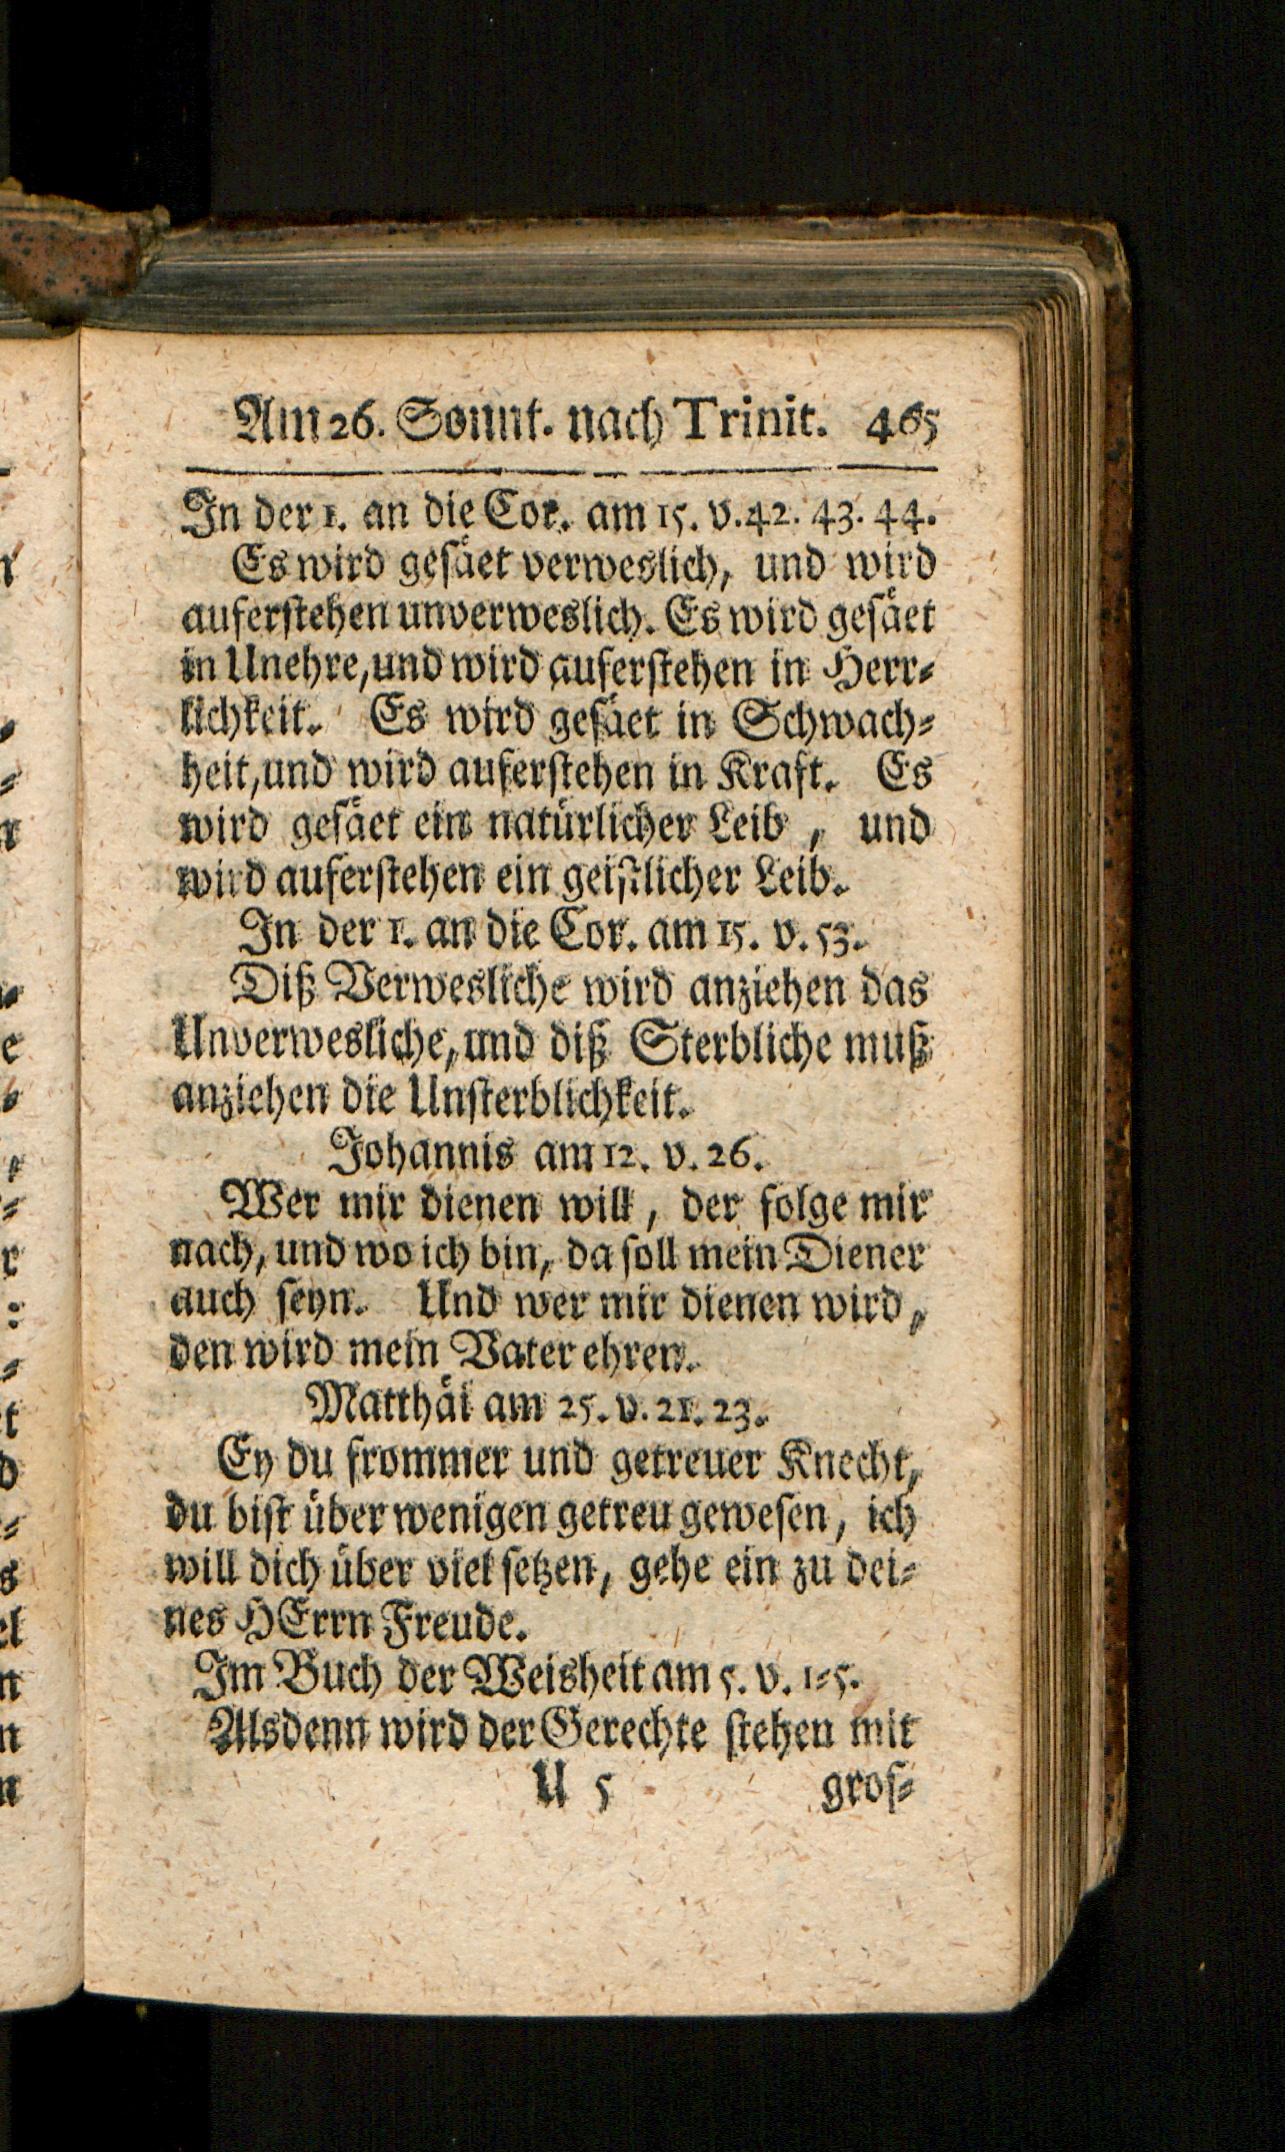 Am 26. Sonnt. nach Trinit. 465
In der 1. an die Cor. am 15. v. 42. 43. 44.
Es wird gesäet verweslich, und wird
auferstehen unverweslich. Es wird gesäet
in Unehre, und wird auferstehen in Herr-
lichkeit. Es wird gesäet in Schwach-
heit, und wird auferstehen in Kraft. Es
wird gesäet ein natürlicher Leib, und
wird auferstehen ein geistlicher Leib.
In der 1. an die Cor. am 15. v. 53.
Diß Verwesliche wird anziehen das
Unverwesliche, und diß Sterbliche muß
anziehen die Unsterblichkeit.
Johannis am 12. v. 26.
Wer mir dienen will, der folge mir
nach, und wo ich bin, da soll mein Diener
auch seyn. Und wer mir dienen wird,
den wird mein Vater ehren.
Matthäi am 25. v. 21. 23.
Ey du frommer und getreuer Knecht,
du bist über wenigen getreu gewesen, ich
will dich über viel setzen, gehe ein zu dei-
nes HErrn Freude.
Im Buch der Weisheit am 5. v. 1-5.
Alsdenn wird der Gerechte stehen mit
U 5 gros-